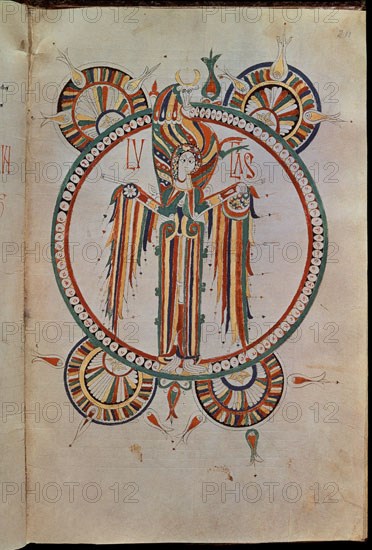 LV CAS
PHOTO 12